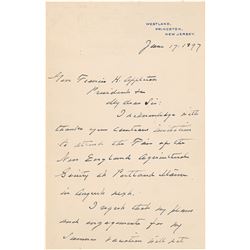 WESTLAND,
PRINCETON,
NEW JERSEY.
June 17. 1897
Hon Francis H. Appleton
President &c
My dear Sir:
I acknowledge with
thanks your courteous invitation
to attend the Fair of the
New England Agricultural
Society at Portland Maine
in August next.
I regret that my plans
and engagements for my
Summer vacation will not